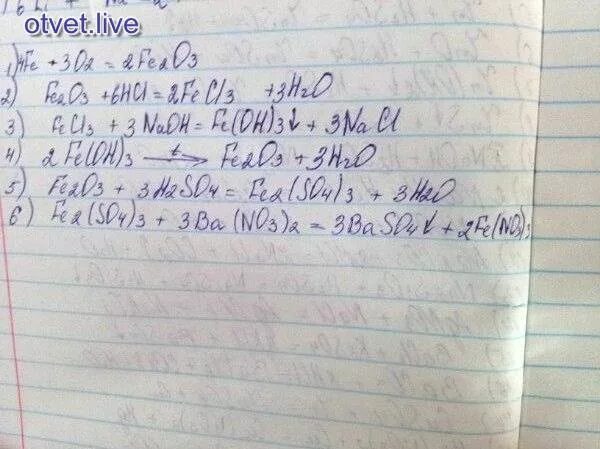 otvet.live
1) 4Fe + 3O2 = 2Fe2O3
2) Fe2O3 + 6HCl = 2FeCl3 + 3H2O
3) FeCl3 + 3NaOH = Fe(OH)3↓ + 3NaCl
4) 2Fe(OH)3 —t→ Fe2O3 + 3H2O
5) Fe2O3 + 3H2SO4 = Fe2(SO4)3 + 3H2O
6) Fe2(SO4)3 + 3Ba(NO3)2 = 3BaSO4↓ + 2Fe(NO3)3